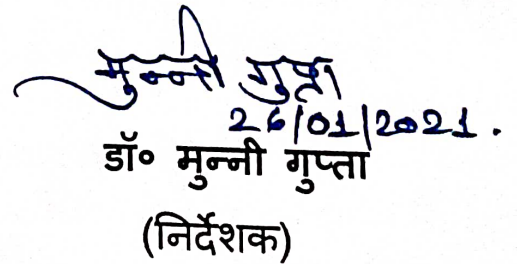 मुन्नी गुप्ता
26/01/2021.
डॉ० मुन्नी गुप्ता
(निर्देशक)